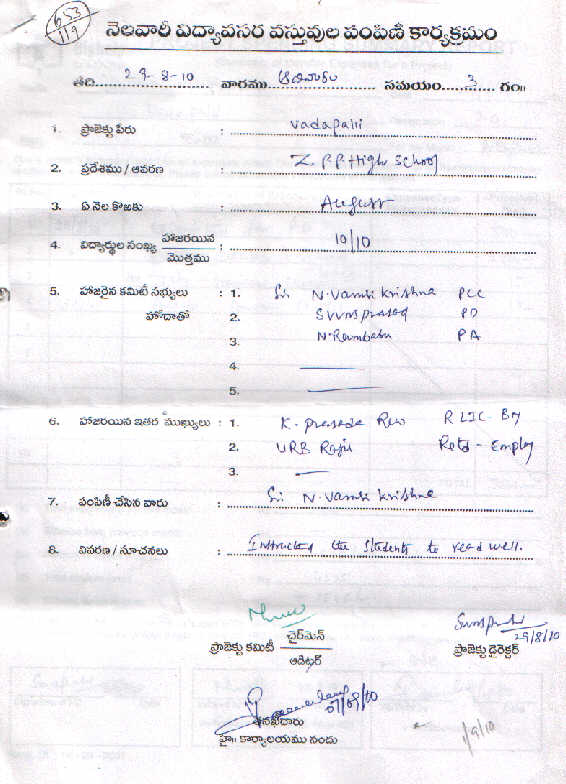 653
119
నెలవారీ విద్యావసర వస్తువుల పంపిణీ కార్యక్రమం
తేది 29-8-10 వారము ఆదివారం సమయం 3 గం॥
1. ప్రాజెక్టు పేరు : Vadapalli
2. ప్రదేశము / ఆవరణ : Z.P.P High School
3. ఏ నెల కొఱకు : August
4. విద్యార్థుల సంఖ్య హాజరయిన / మొత్తము : 10/10
5. హాజరైన కమిటీ సభ్యులు : 1. Sri N. Vamsi Krishna PCC
హోదాతో 2. SVVNS prasad PD
3. N. Rambabu PA
4. ——
5. ——
6. హాజరయిన ఇతర ముఖ్యులు : 1. K. prasada Rao
2. URB Raju Retd - Employ
3. —
7. పంపిణీ చేసిన వారు : Sri N. Vamsi Krishna
8. వివరణ / సూచనలు : Instructed the Students to read well.
29/8/10
ప్రాజెక్టు కమిటీ ఛైర్‌మెన్ / ఆడిటర్
ప్రాజెక్టు డైరెక్టర్
07/09/10
తనఖీదారు
హై॥ కార్యాలయము నందు
1/9/10